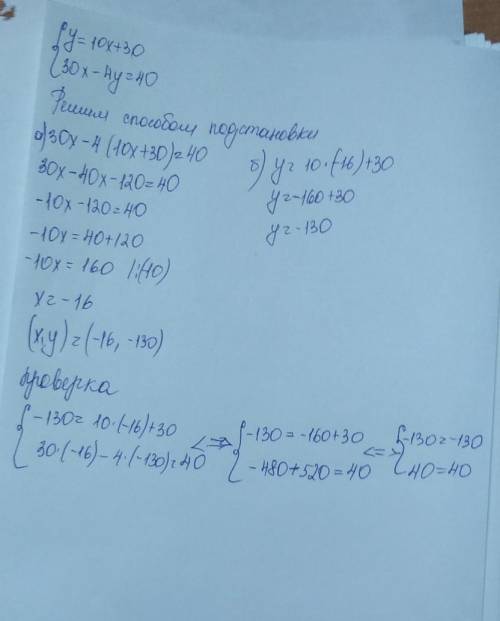 {y=10x+30
{30x-4y=40
Решим способом подстановки
а) 30x-4(10x+30)=40
30x-40x-120=40
-10x-120=40
-10x=40+120
-10x=160 |:(-10)
x=-16
б) y=10·(-16)+30
y=-160+30
y=-130
(x,y)=(-16,-130)
Проверка
{-130=10·(-16)+30 <=> {-130=-160+30 <=> {-130=-130
{30·(-16)-4·(-130)=40 {-480+520=40 {40=40